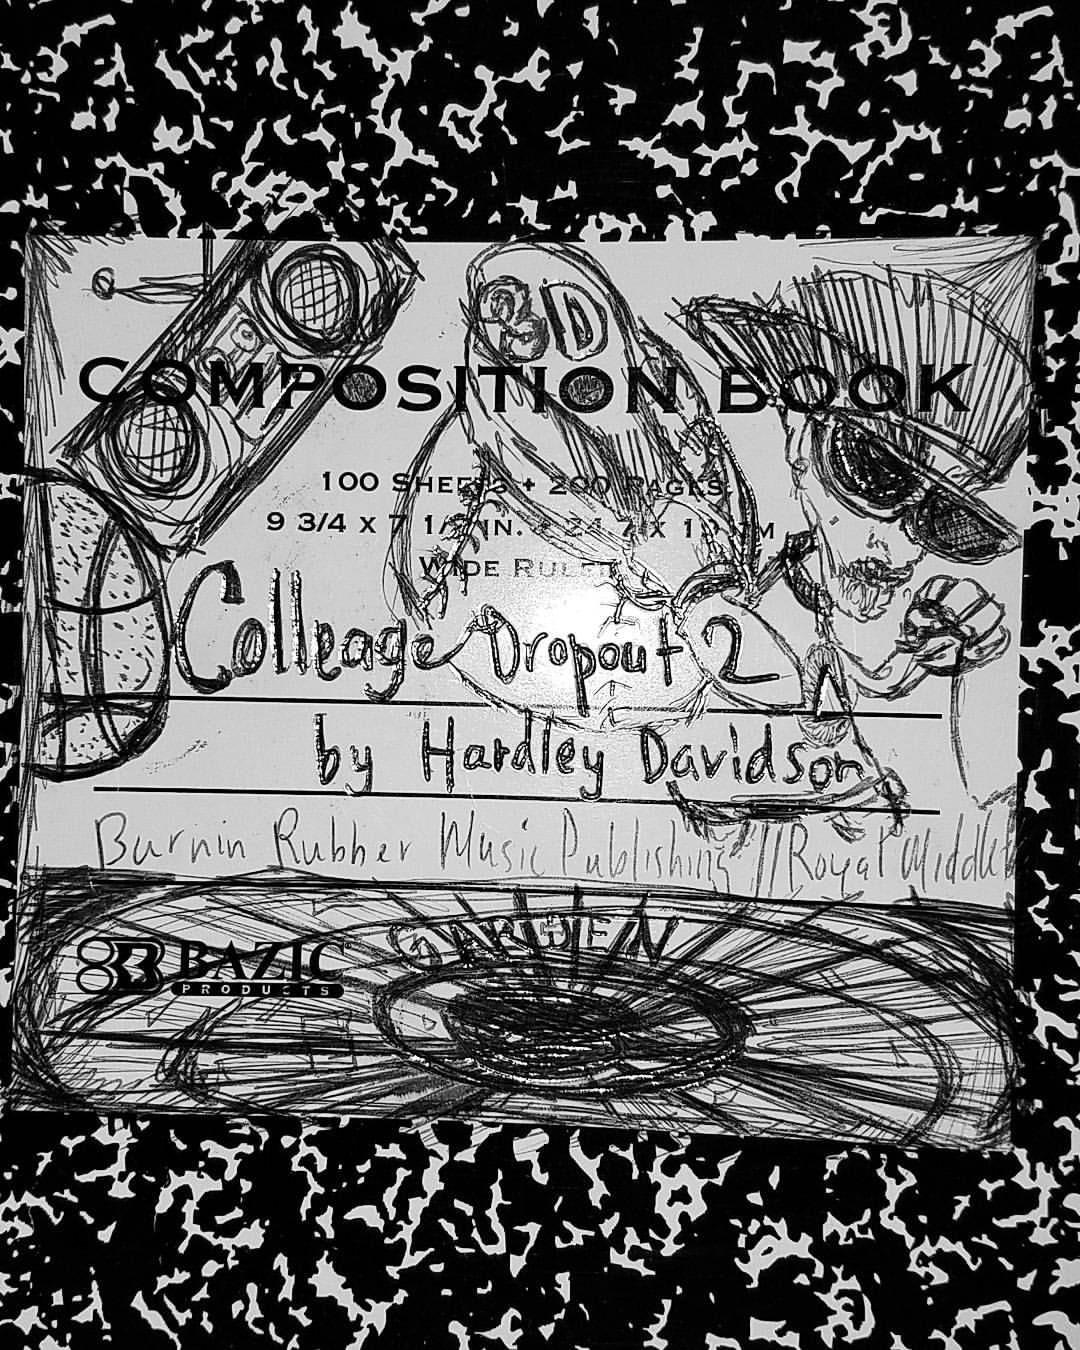 3D
COMPOSITION BOOK
100 SHEETS + 200 PAGES
9 3/4 x 7 1/2 IN. + 24.7 x 19 CM
WIDE RULED
Colleage Dropout 2
by Hardley Davidson
Burnin Rubber Music Publishing // Royal
GARDEN
BAZIC
PRODUCTS